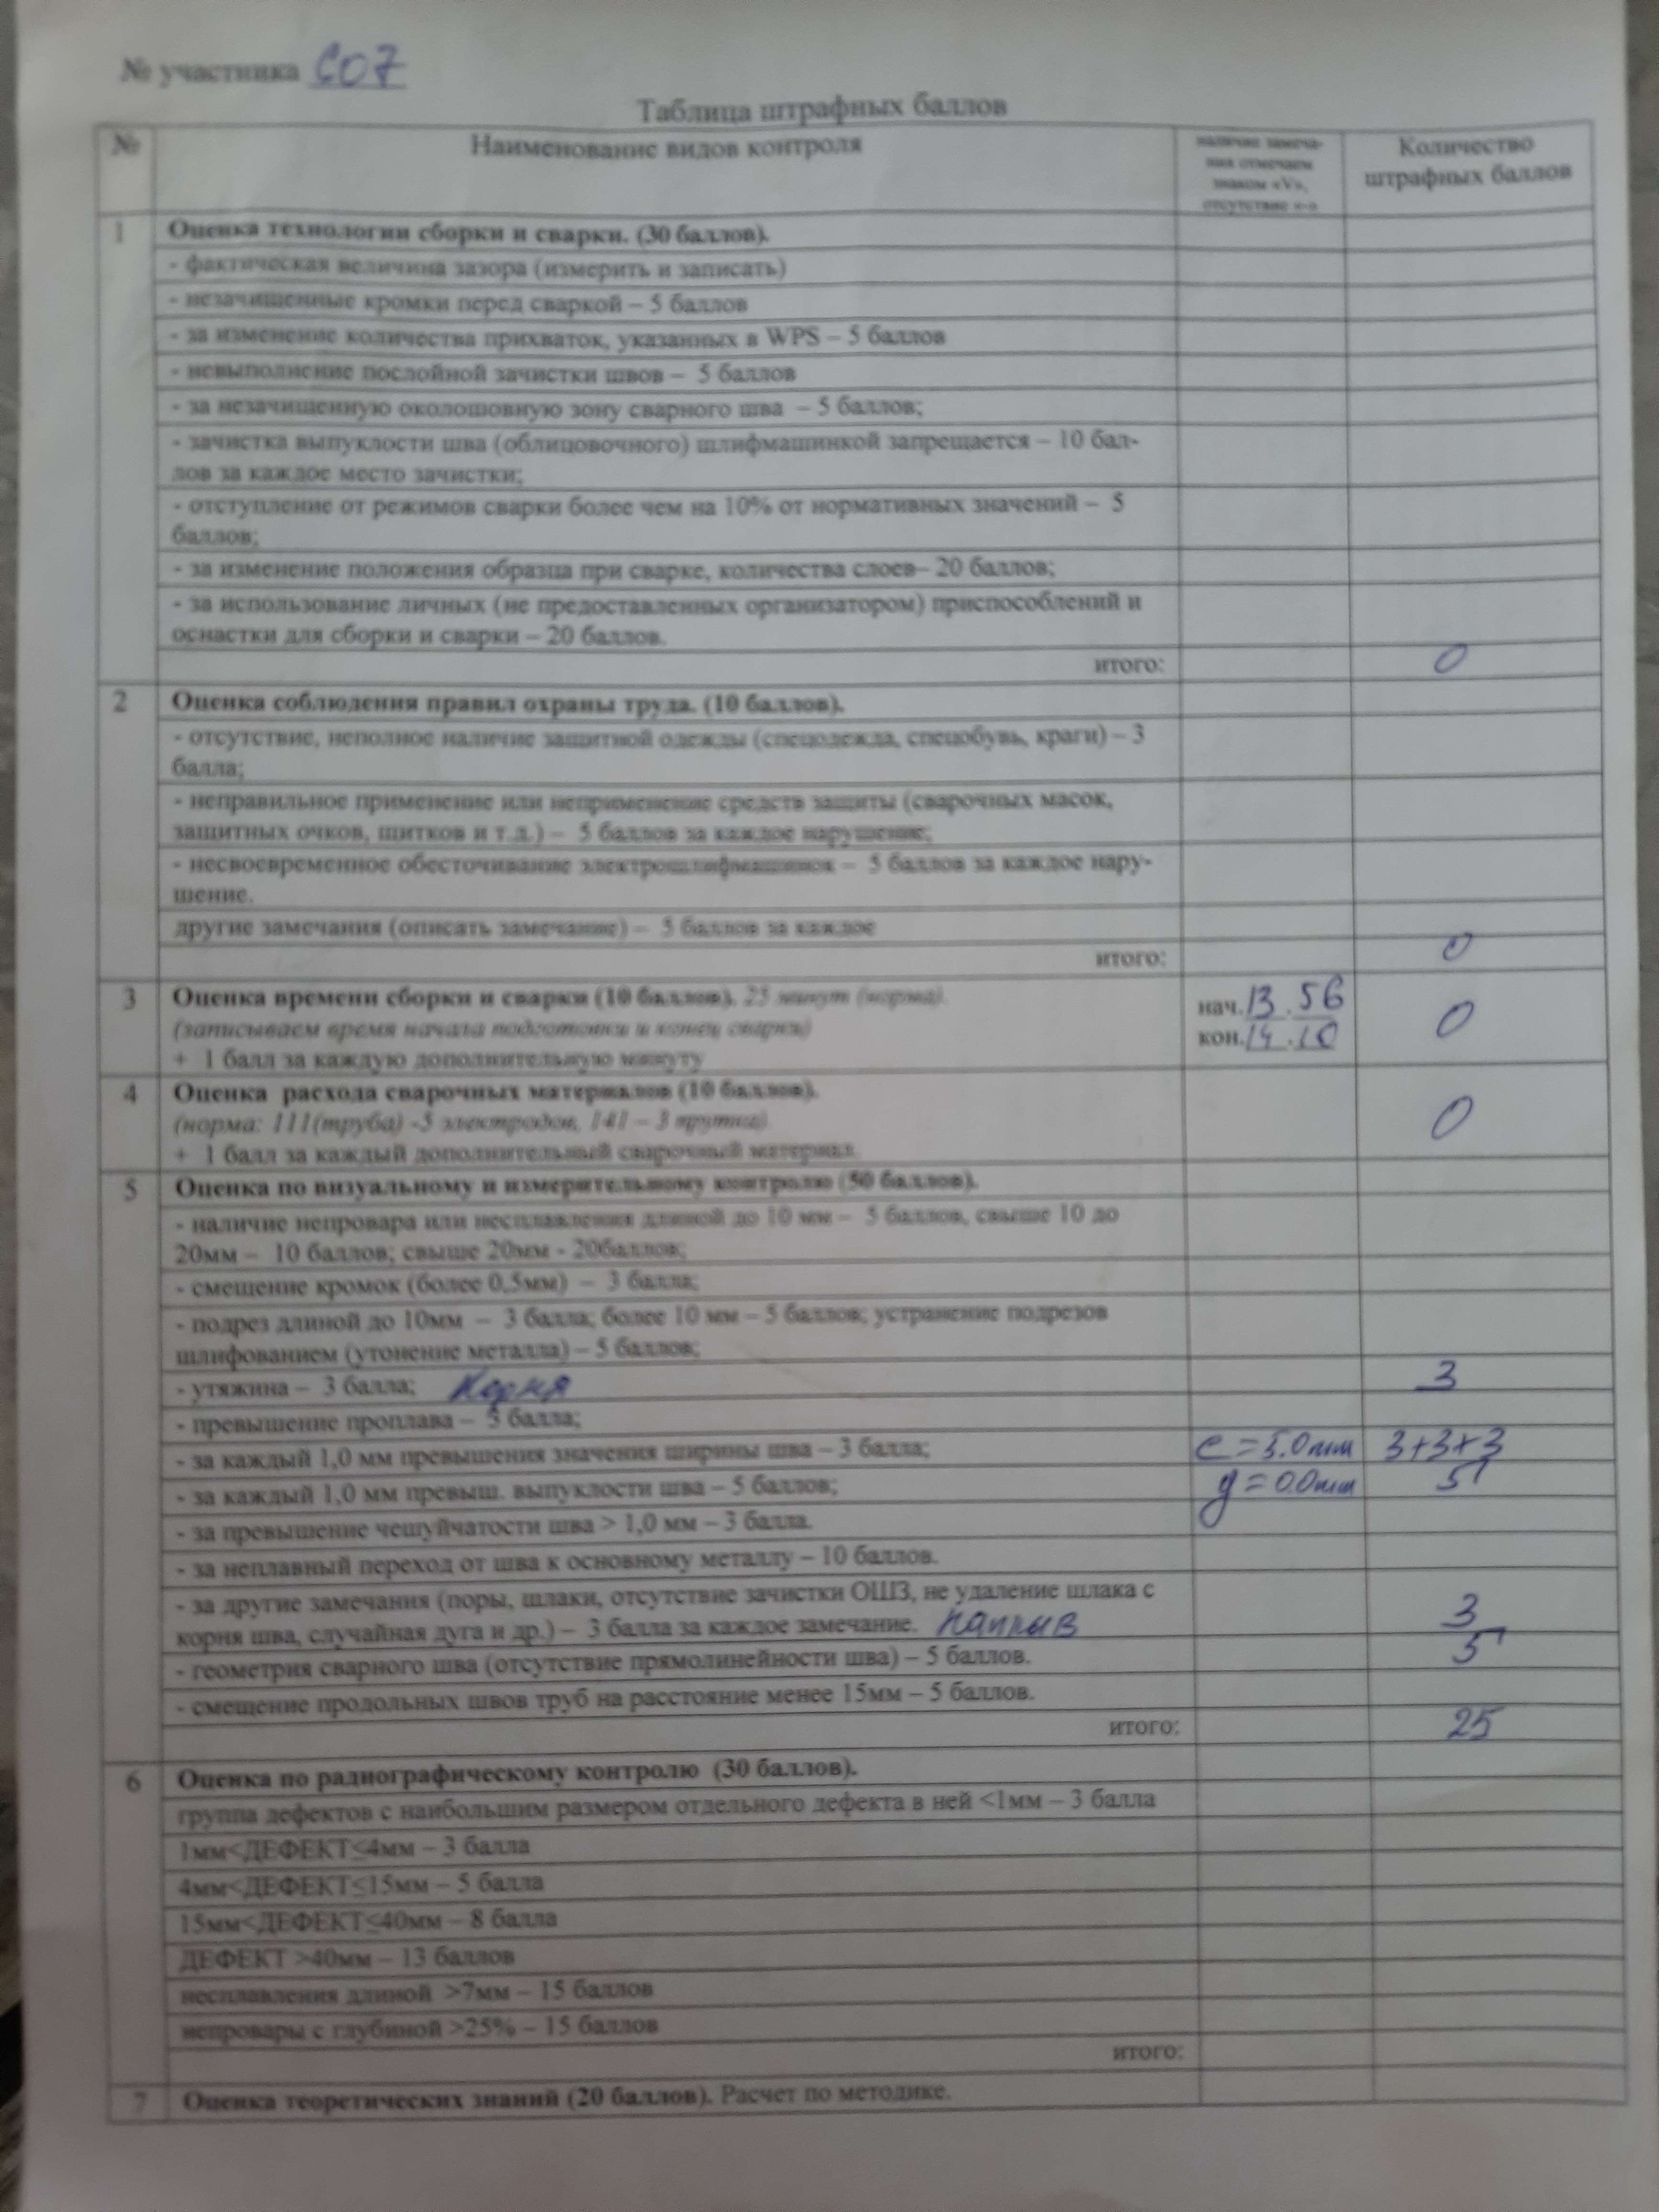 № участника С07
Таблица штрафных баллов
№
Наименование видов контроля
наличие замеча-
ния отмечаем
знаком «V»,
отсутствие «-»
Количество
штрафных баллов
1
Оценка технологии сборки и сварки. (30 баллов).
- фактическая величина зазора (измерить и записать)
- незачищенные кромки перед сваркой – 5 баллов
- за изменение количества прихваток, указанных в WPS – 5 баллов
- невыполнение послойной зачистки швов – 5 баллов
- за незачищенную околошовную зону сварного шва – 5 баллов;
- зачистка выпуклости шва (облицовочного) шлифмашинкой запрещается – 10 бал-
лов за каждое место зачистки;
- отступление от режимов сварки более чем на 10% от нормативных значений – 5
баллов;
- за изменение положения образца при сварке, количества слоев– 20 баллов;
- за использование личных (не предоставленных организатором) приспособлений и
оснастки для сборки и сварки – 20 баллов.
итого: 0
2
Оценка соблюдения правил охраны труда. (10 баллов).
- отсутствие, неполное наличие защитной одежды (спецодежда, спецобувь, краги) – 3
балла;
- неправильное применение или неприменение средств защиты (сварочных масок,
защитных очков, щитков и т.д.) – 5 баллов за каждое нарушение;
- несвоевременное обесточивание электрошлифмашинок – 5 баллов за каждое нару-
шение.
другие замечания (описать замечание) – 5 баллов за каждое
итого: 0
3
Оценка времени сборки и сварки (10 баллов). 25 минут (норма).
(записываем время начала подготовки и конец сварки)
+ 1 балл за каждую дополнительную минуту
нач. 13.56
кон. 14.10
0
4
Оценка расхода сварочных материалов (10 баллов).
(норма: 111(труба) -5 электродов, 141 – 3 прутка).
+ 1 балл за каждый дополнительный сварочный материал.
0
5
Оценка по визуальному и измерительному контролю (50 баллов).
- наличие непровара или несплавления длиной до 10 мм – 5 баллов, свыше 10 до
20мм – 10 баллов; свыше 20мм - 20баллов;
- смещение кромок (более 0,5мм) – 3 балла;
- подрез длиной до 10мм – 3 балла; более 10 мм – 5 баллов; устранение подрезов
шлифованием (утонение металла) – 5 баллов;
- утяжина – 3 балла; Корня 3
- превышение проплава – 3 балла;
- за каждый 1,0 мм превышения значения ширины шва – 3 балла; e = 5.0мм 3+3+3
- за каждый 1,0 мм превыш. выпуклости шва – 5 баллов; g = 0.0мм 5
- за превышение чешуйчатости шва > 1,0 мм – 3 балла.
- за неплавный переход от шва к основному металлу – 10 баллов.
- за другие замечания (поры, шлаки, отсутствие зачистки ОШЗ, не удаление шлака с
корня шва, случайная дуга и др.) – 3 балла за каждое замечание. наплыв 3
- геометрия сварного шва (отсутствие прямолинейности шва) – 5 баллов. 5
- смещение продольных швов труб на расстояние менее 15мм – 5 баллов.
итого: 25
6
Оценка по радиографическому контролю (30 баллов).
группа дефектов с наибольшим размером отдельного дефекта в ней <1мм – 3 балла
1мм<ДЕФЕКТ≤4мм – 3 балла
4мм<ДЕФЕКТ≤15мм – 5 балла
15мм<ДЕФЕКТ≤40мм – 8 балла
ДЕФЕКТ >40мм – 13 баллов
несплавления длиной >7мм – 15 баллов
непровары с глубиной >25% – 15 баллов
итого:
7
Оценка теоретических знаний (20 баллов). Расчет по методике.